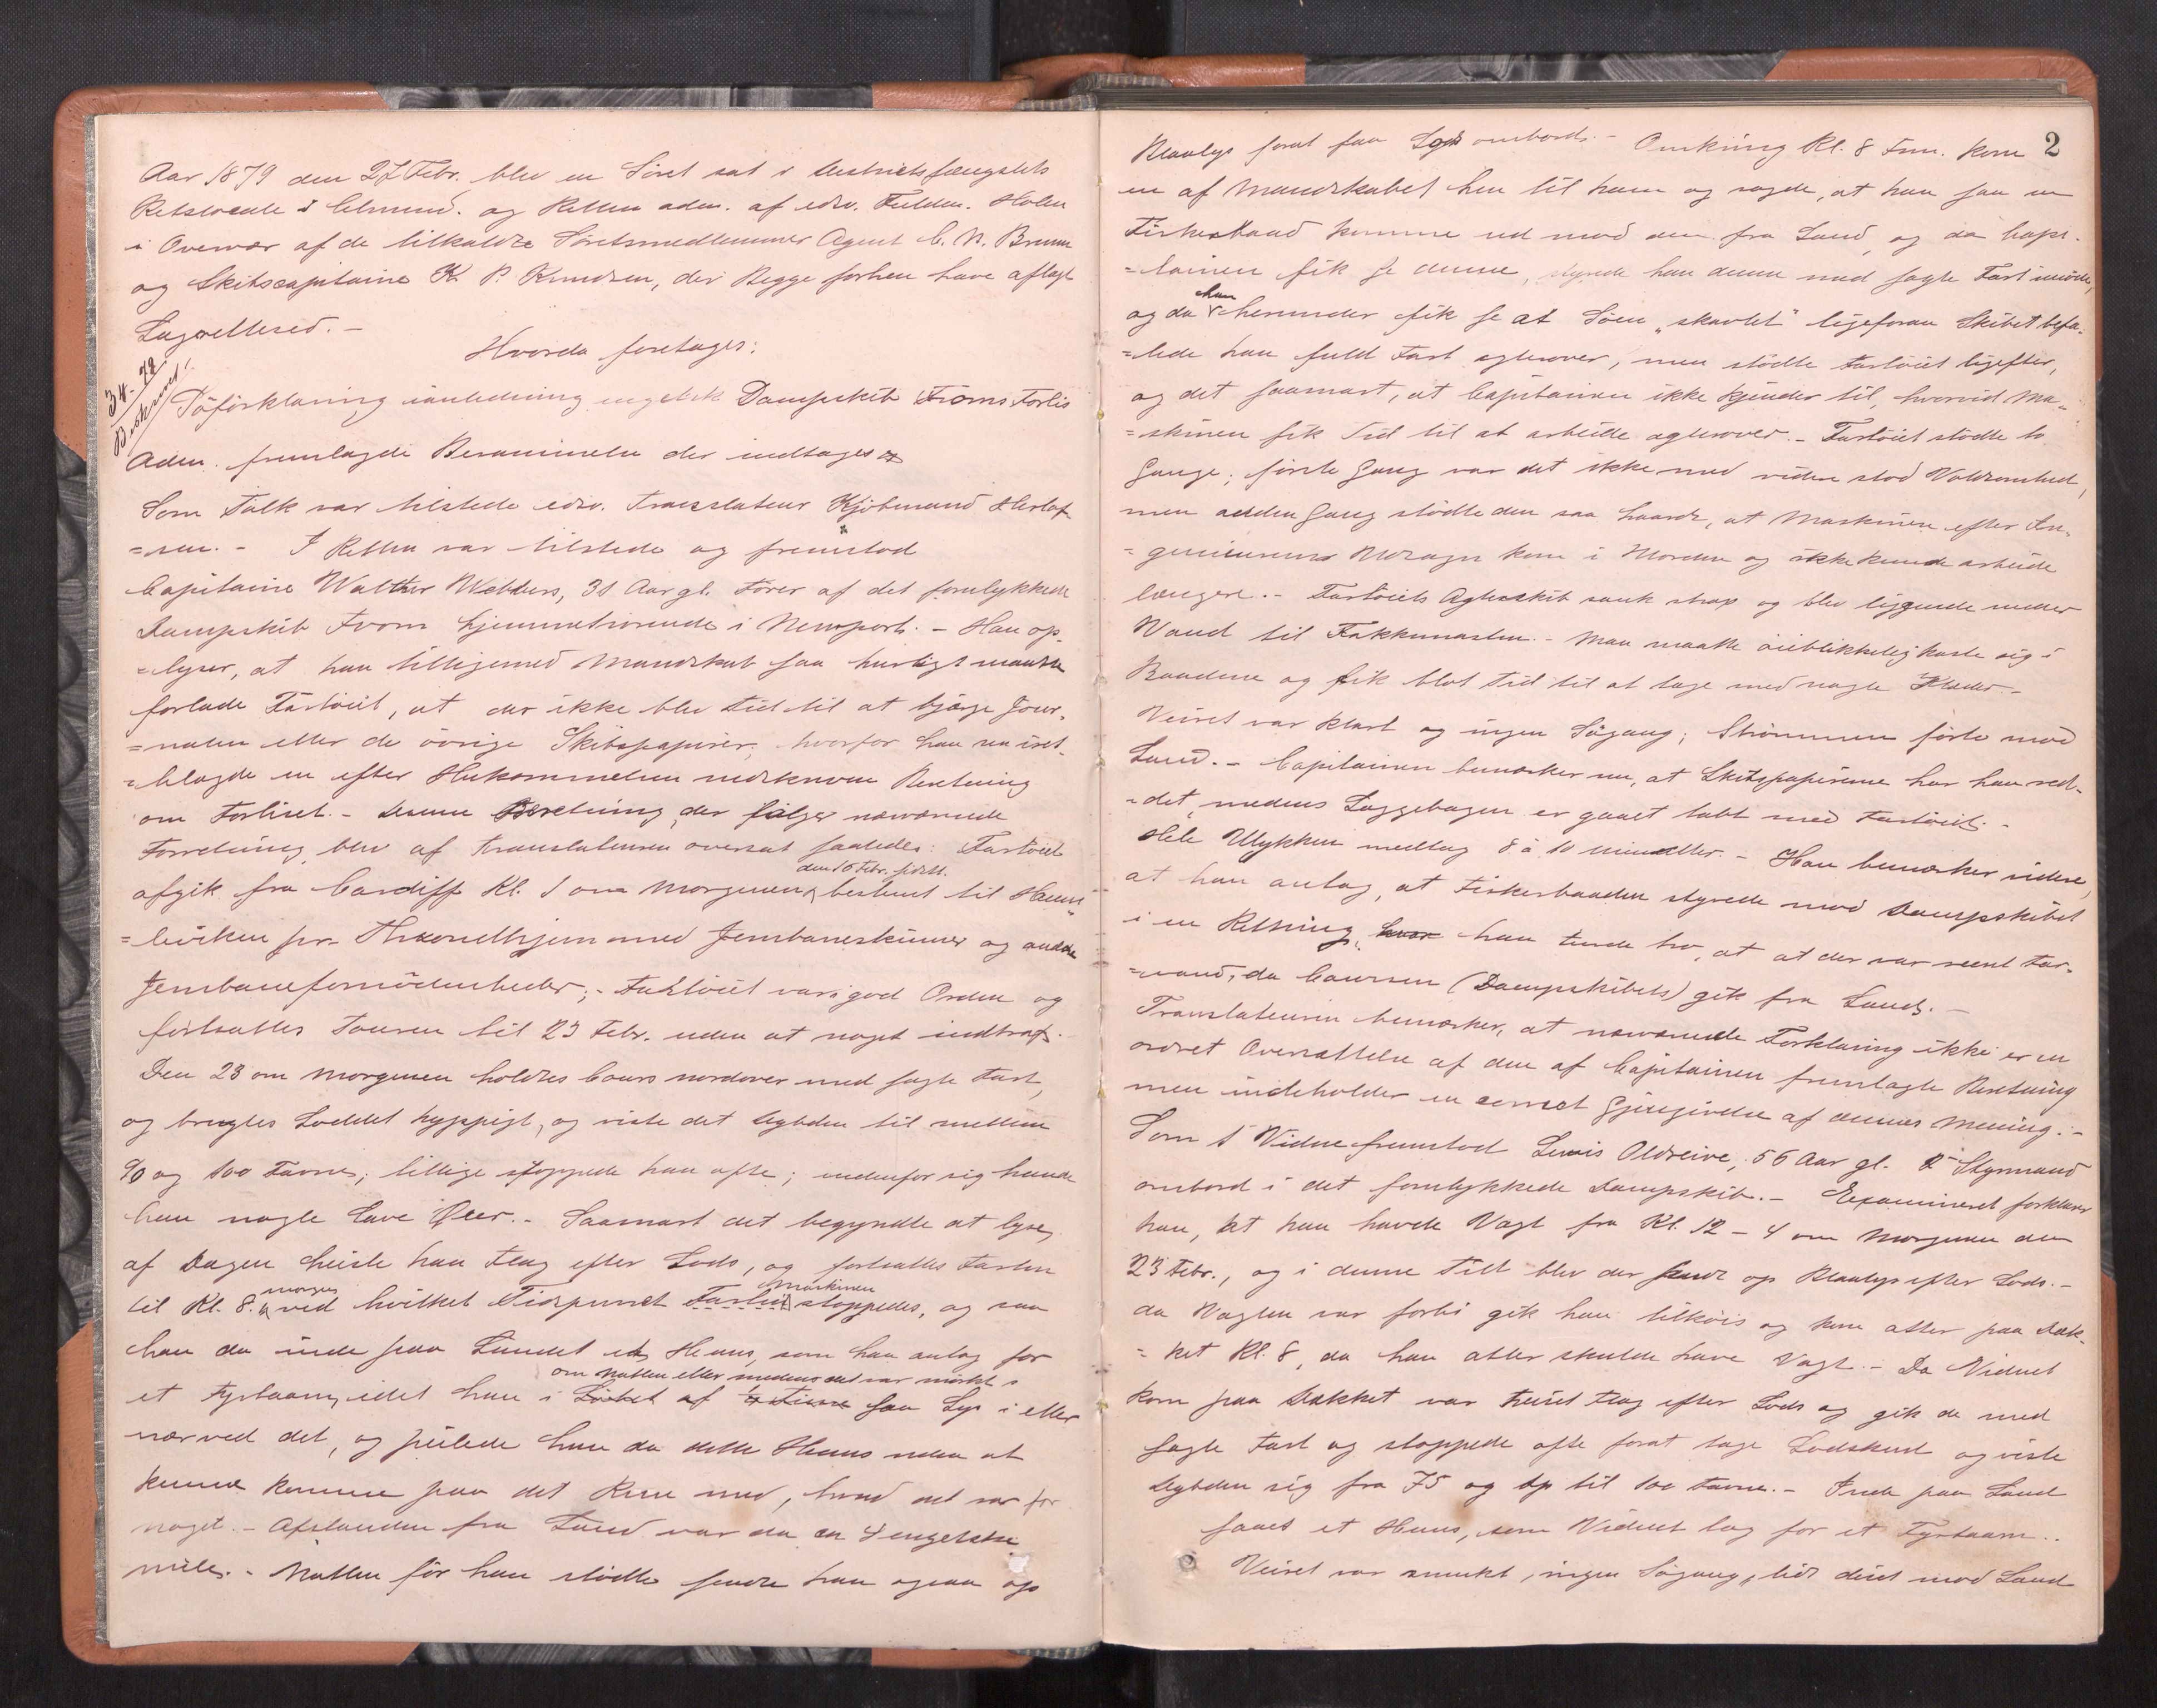 Aar 1879 den 27 Febr. blev en Söret sat i Distriktsfængslets
Retslocale i Chrsund. og Retten adm. af edsv. Fuldm. Holm
i Overvær af de tilkaldte Söretsmedlemmer Agent C. N. Bruun
og Skibscapitaine K. P. Knudsen, der Begge forhen have aflagt
Lagrettesed. -
Hvorda foretoges:
34-79
Beskrevet!
Söforklaring i anledning engelsk Dampskib Froms Forlis
Adm. fremlagde Berammelse der indtages
Som Tolk var tilstede edsv. Translateur Kjöbmand Herlof-
=sen. - I Retten var tilstede og fremstod
Capitaine Walther Webbers, 31 Aar gl. Förer af det forulykkede
Dampskib From hjemmehörende i Newport. - Han op-
=lyser, at han tilligemed Mandskab saa hurtigt maatte
forlade Fartöiet, at der ikke blev Tid til at bjærge Jour-
=nalen eller de övrige Skibspapirer, hvorfor han nu iret-
=telagde en efter Hukommelsen nedskreven Beretning
om Forliset. - Denne Beretning, der fölger nærværende
Forretning, blev af Translateuren oversat saaledes: Fartöiet
den 16 Febr. sidstl.
afgik fra Cardiff Kl. 1 om Morgenen bestemt til Hom-
=melviken pr. Throndhjem med Jernbaneskinner og andre
Jernbanefornödenheder; - Fartöiet var i god Orden og
fortsattes Touren til 23 Febr. uden at noget indtraf. -
Den 23 om Morgenen holdtes Cours nordover med sagte Fart,
og brugtes Loddet hyppigt, og viste det Dybden til mellem
90 og 100 Favne; tillige stoppede han ofte; indenfor sig havde
han nogle lave Öer. - Saasnart det begyndte at lyse
af Dagen heiste han Flag efter Lods, og fortsattes Farten
morgen Maskinen
til Kl. 8. ved hvilket Tidspunct Fartöiet stoppedes, og saa
han da inde paa Landet et Huus, som han antog for
om Natten eller medens det var mörkt
et Fyrtaarn, idet han i Löbet af ½ Time saa Lys i eller
nær ved det, og peilede han da dette Huus uden at
kunne komme paa det Rene med, hvad det var for
noget. - Afstanden fra Land var da ca 4 engelske
miles. - Natten för han stödte sendte han ogsaa op
2
Blaalys forat faa Lods ombord. - Omkring Kl. 8 Fm. kom
en af Mandskabet hen til ham og sagde, at han saa en
Fiskerbaad komme ud mod dem fra Land, og da Capi-
=tainen fik se denne, styrede han denne med sagte Fart imöde,
han
og da herunder fik se at Söen „skavlet" ligeforan Skibet befa-
=lede han fuld Fart agterover, men stödte Fartöiet ligefter,
og det saasnart, at Capitainen ikke kjender til, hvorvidt Ma-
=skinen fik Tid til at arbeide agterover. - Fartöiet stödte to
Gange; förste Gang var det ikke med videre stor Voldsomhed,
men anden Gang stödte den saa haardt, at Maskinen efter In-
=genieurens Udsagn kom i Uorden og ikke kunde arbeide
længere. - Fartöiets Agterskib sank strax og blev liggende under
Vand til Fokkemasten. - Man maatte öieblikkelig kaste sig i
Baadene og fik blot Tid til at tage med nogle Klæder. -
Veiret var klart og ingen Sögang; Strömmen förte mod
Land. - Capitainen bemærker nu, at Skibspapirerne har han red-
=det, medens Loggebogen er gaaet tabt med Fartöiet. -
Hele Ulykken medtog 8 à 10 minutter. - Han bemærker videre,
at han antog, at Fiskerbaaden styrede mod Dampskibet
i en Retning, hvor han turde tro, at at der var reent Far-
=vand, da Coursen (Dampskibets) gik fra Land. -
Translateuren bemærker, at nærværende Forklaring ikke er en
ordret Oversættelse af den af Capitainen fremlagte Beretning
men indeholder en correct Gjengivelse af dennes Mening. -
Som 1 Vidne fremstod Lewis Oldreive, 56 Aar gl. 2 Styrmand
ombord i det forulykkede Dampskib. - Examineret forklarer
han, at han havde Vagt fra Kl. 12 - 4 om Morgenen den
23 Febr., og i denne Tid blev der sendt op Blaalys efter Lods. -
da Vagten var forbi gik han tilköis og kom atter paa Dæk-
=ket Kl. 8, da han atter skulde have Vagt. - Da Vidnet
kom paa Dækket var heiset Flag efter Lods og gik de med
sagte Fart og stoppede ofte forat tage Lodskud og viste
Dybden sig fra 75 og op til 100 Favne. - Inde paa Land
saaes et Huus, som Vidnet tog for et Fyrtaarn. -
Veiret var smukt, ingen Sögang, lidt diset mod Land